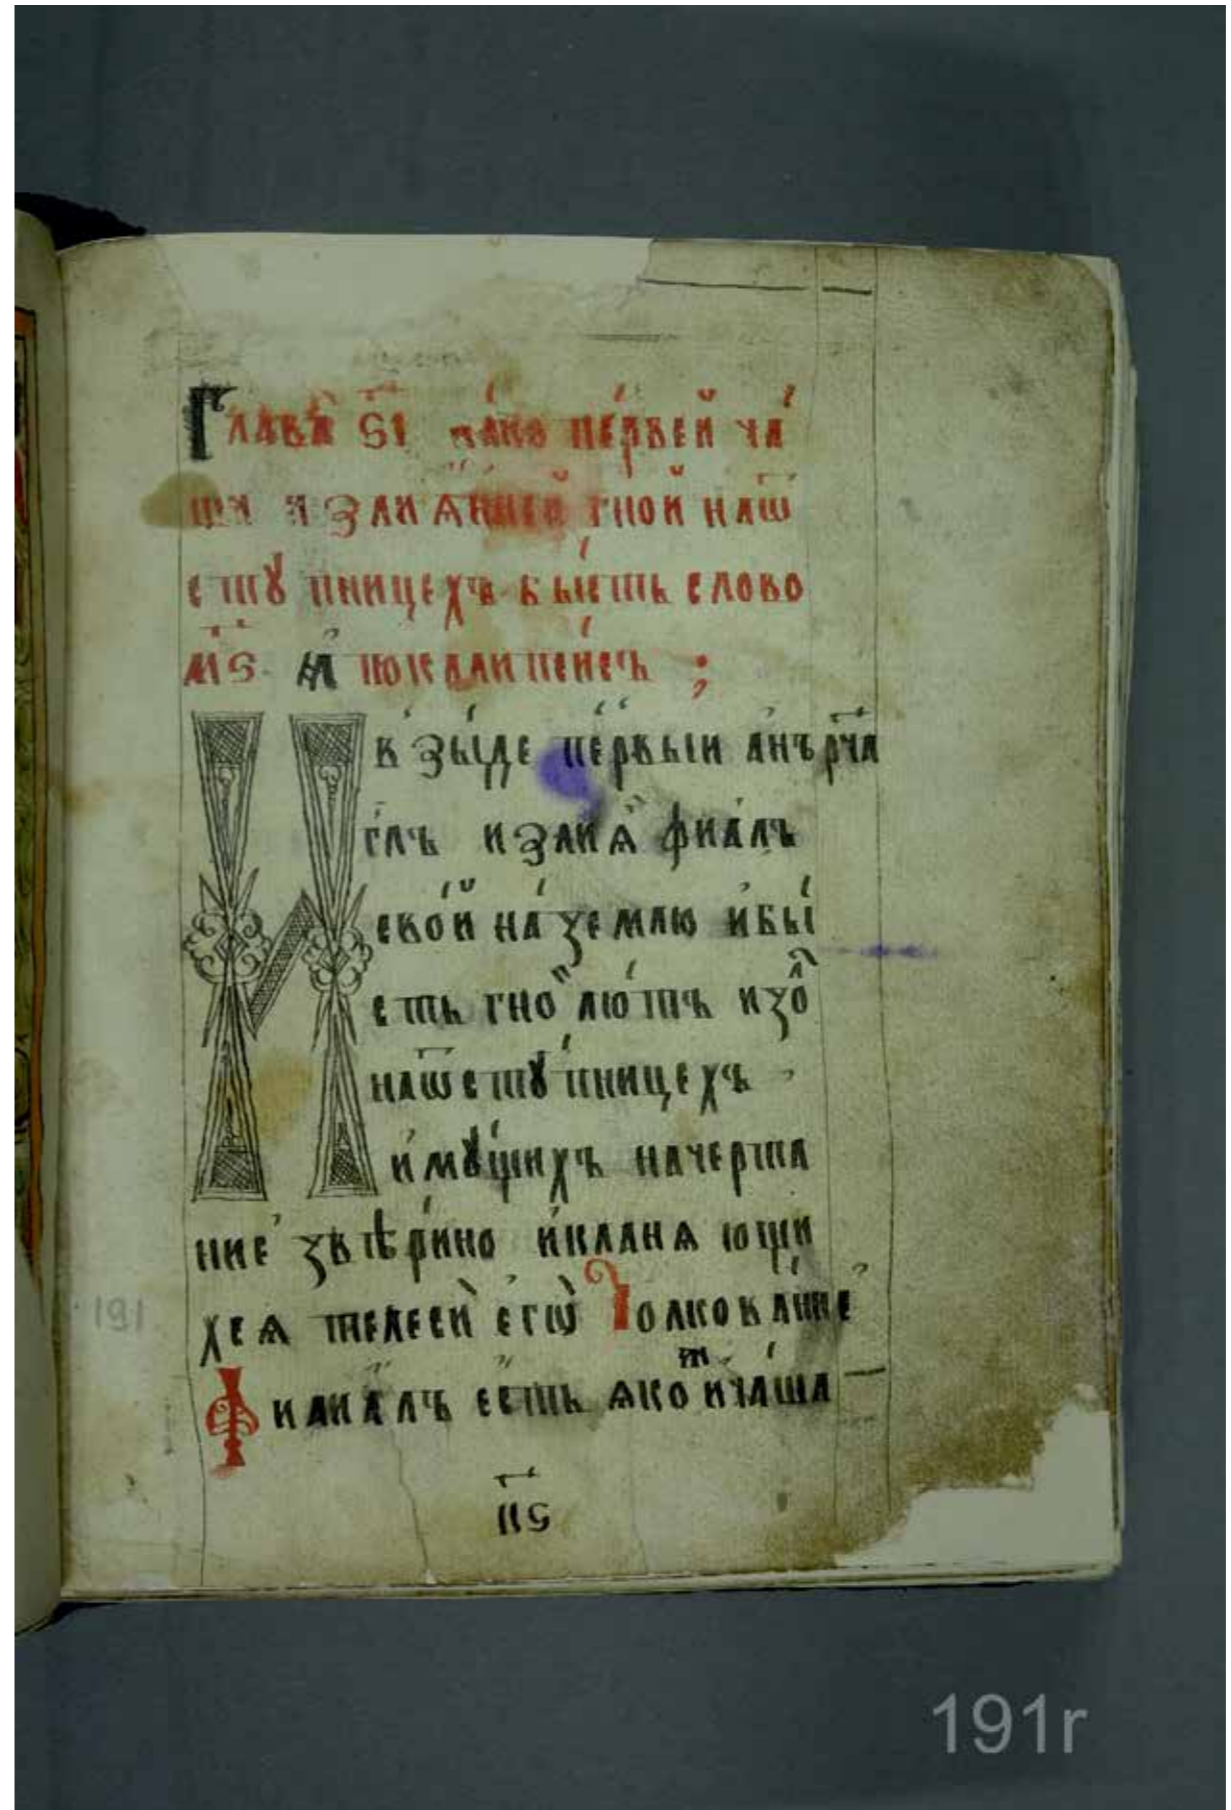 Глава̀ ѕ҃і ꙗ҆́ко пе́рвей ча́
ши изли ѧ́нней гной наѿ
сту пницехъ бы́сть слово
м҃ѕ А҆ покали псисъ ;
И взы́де пе́рвыи а҆нъ рча
г҃лъ излиѧ̀ фиа́лъ
свой на́ землю и҆бы́
сть гной лю́тъ изо́л
наѿсту́пницехъ
и҆мꙋ́щихъ начерта
ние́ звѣри́но и҆клана ющи
хсѧ телеси̏ е҆гѡ̀ Толкова́ние
Фиаиа́лъ е҆сть ꙗко и ча́ша
191
191r